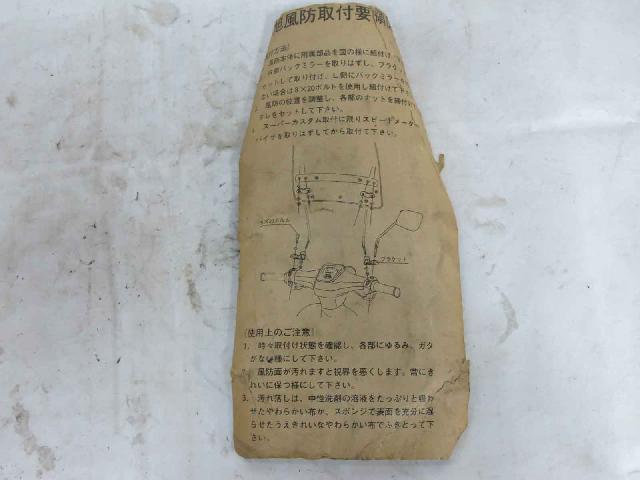 旭風防取付要領
付方法)
風防本体に附属部品を図の様に組付け
両側バックミラーを取りはずし、ブラケ
セットして取り付け、L側にバックミラーの
ない場合は8×20ボルトを使用し組付けて下
風防の位置を調整し、各部のナットを締付け
ラしをセットして下さい。
スーパーカスタム取付に限りスピードメーター
バイザを取りはずしてから取付て下さい。
8×20ボルト
ブラケット
(使用上のご注意)
1. 時々取付け状態を確認し、各部にゆるみ、ガタ
がない様にして下さい。
風防面が汚れますと視界を悪くします。常にき
れいに保つ様にして下さい。
3. 汚れ落しは、中性洗剤の溶液をたっぷりと吸わ
せたやわらかい布か、スポンジで表面を充分に湿
らせたうえきれいなやわらかい布でふきとって下
さい。